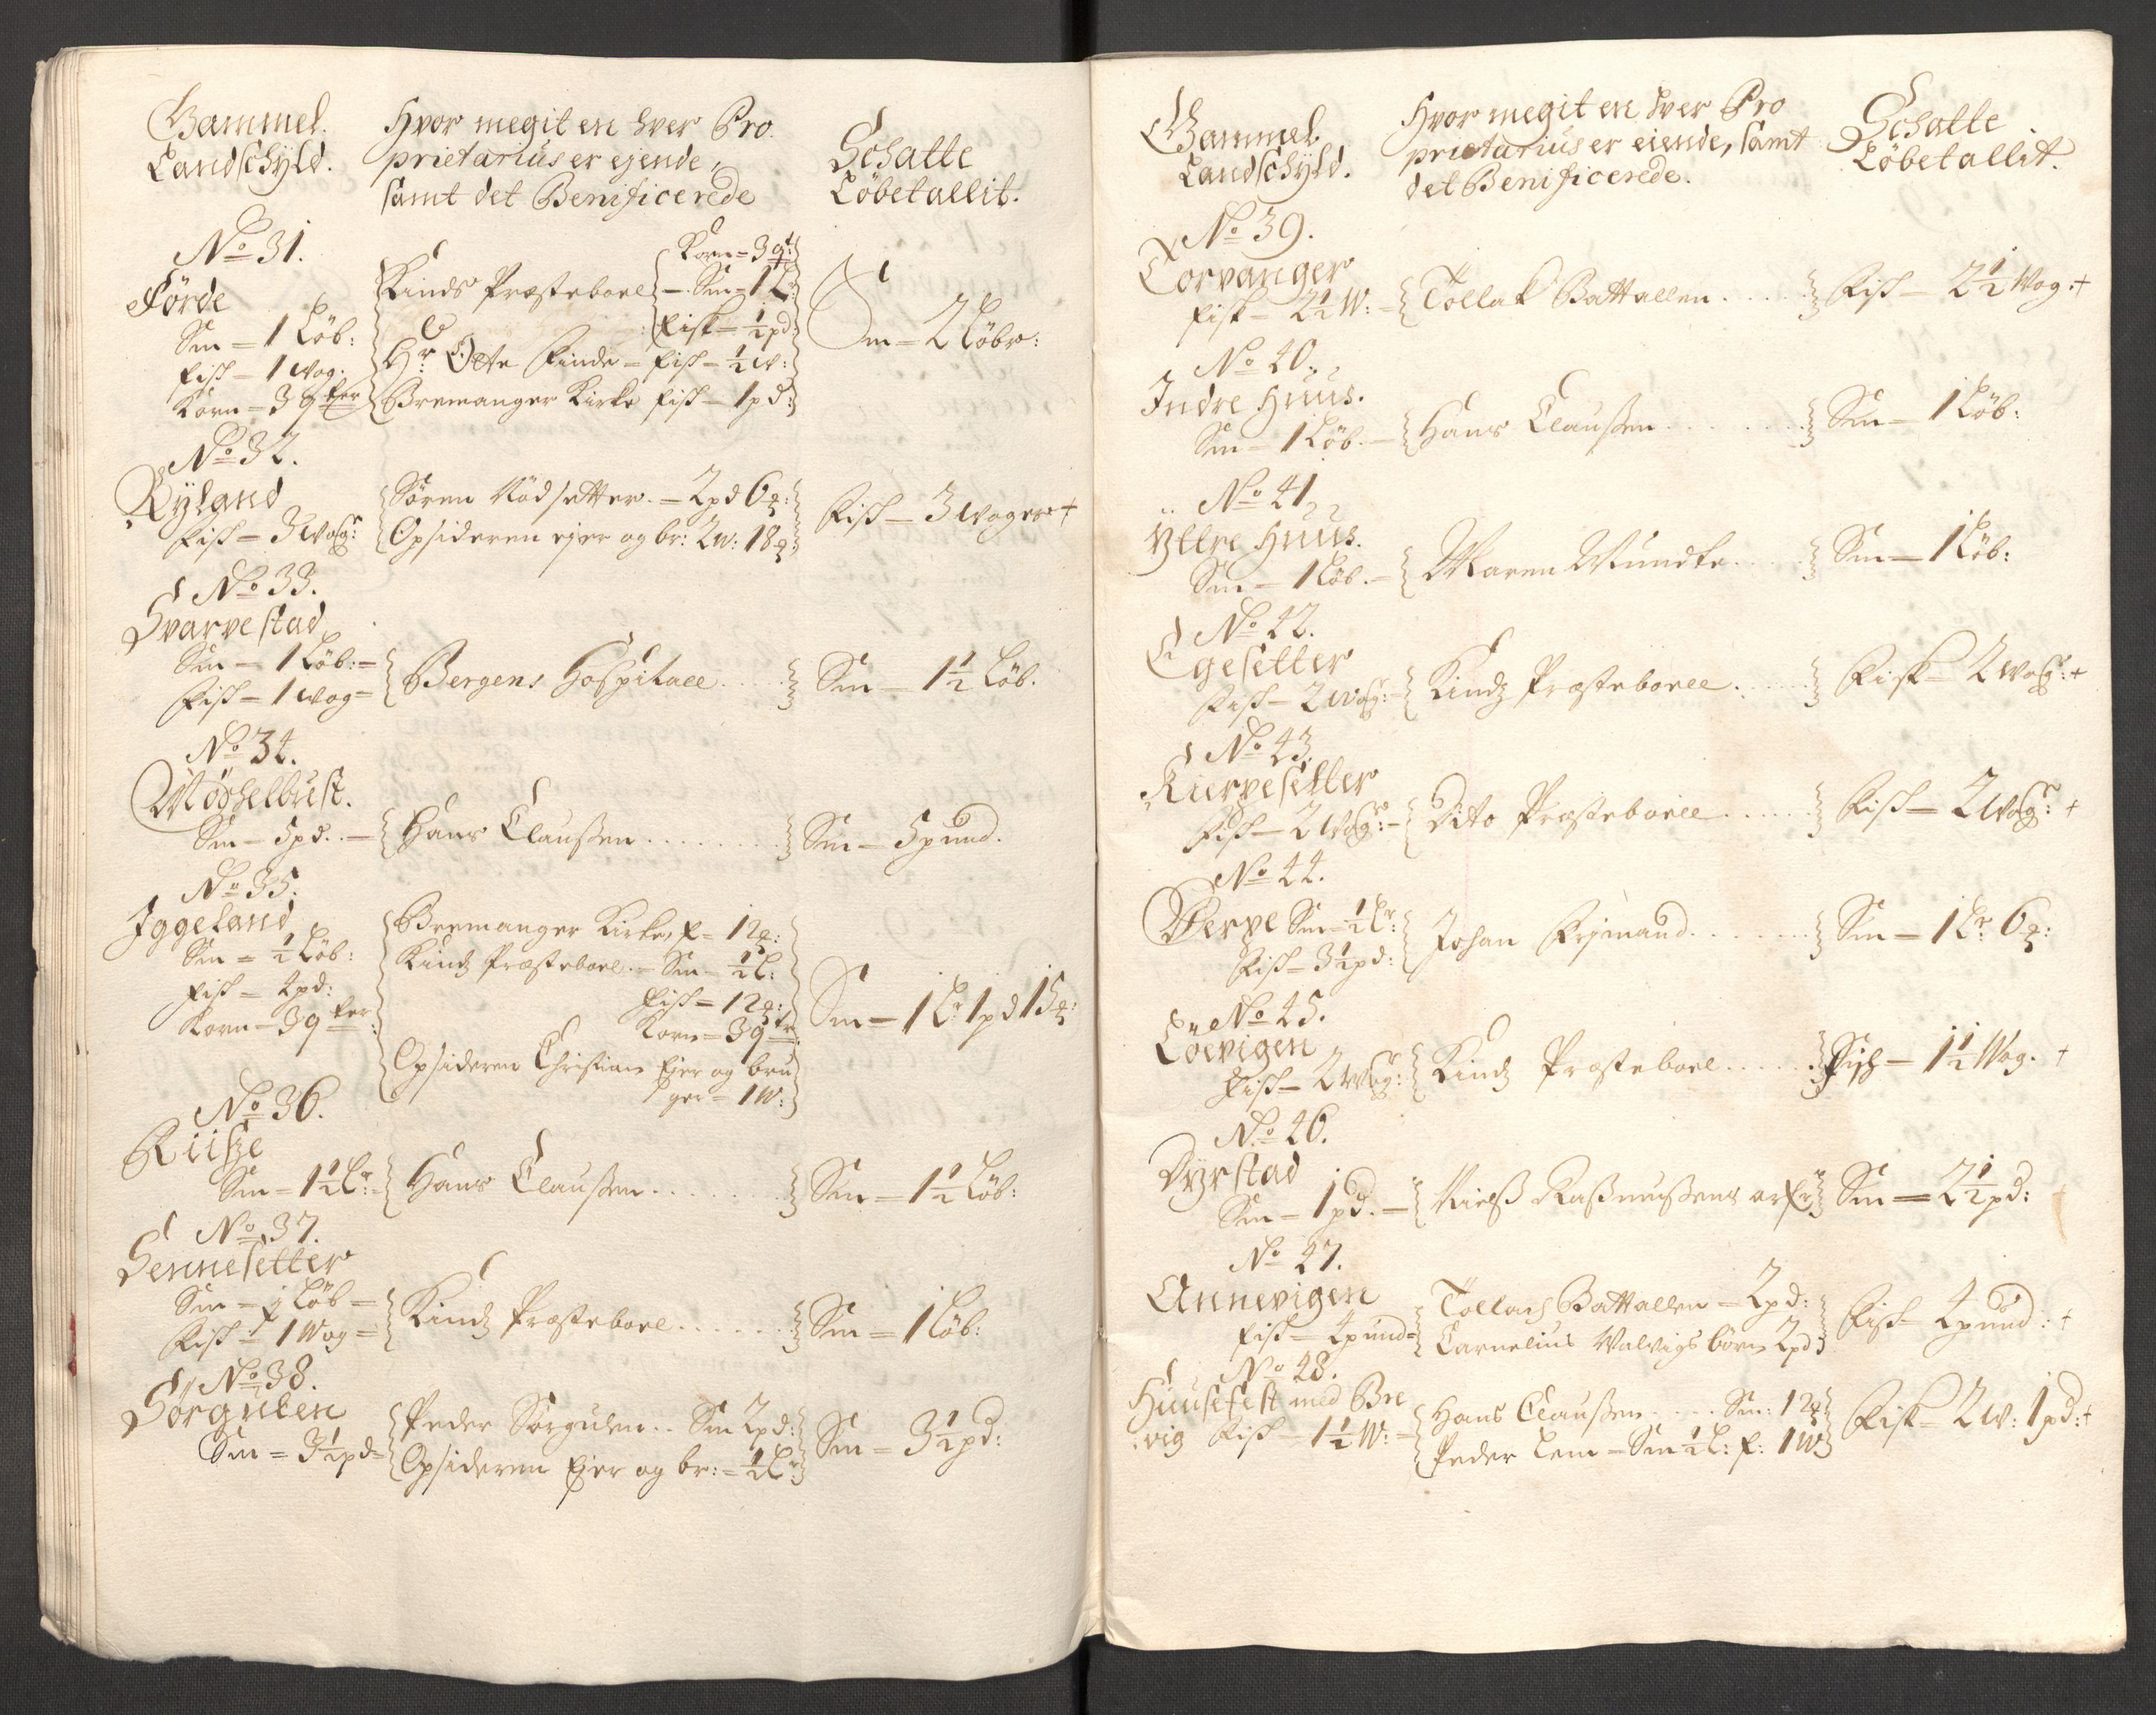 Gammel Landschyld.
Hvor megit en hver Pro
prietarius er ejende,
samt det Benificerede
Schatte
Löbetallit.
No 31.
Förde
Sm = 1 Löb:
Fisch = 1 wog:
Korn = 3 qter
Kinds Præsteboel
Korn = 3 qt:
Sm = 1 L:
Fisk = ½ pd:
Hr Otte Finde = Fisch = ½ w:
Bremanger Kirke Fisch = 1 pd:
Sm = 2 Löber:
No 32.
Rylgnd
Fisch = 3 wogr:
Sören Nödsetter. = 2 pd 6 ƀ:
Opsideren ejer og br: 2 w: 18 ƀ:
Fisch = 3 woger +
No 33.
Svarvestad
Sm = 1 Löb: =
Fisch = 1 wog =
Bergens Hospitall.....
Sm = 1½ Löb.
No 34.
Möschelbust.
Sm = 5 pd. =
Hans Claussen........
Sm = 5 pund.
No 35.
Iggeland
Sm = ½ Löb:
Fisch = 4 pd:
Korn = 3 qter
Bremanger Kirke, F = 12 ƀ:
Kindz Præsteboel. = Sm = ½ L:
Fisch = 12 ƀ:
Korn = 3 qtr.
Opsideren Christian Ejer og bru
ger = 1 W:
Sm = 1 L: 1 pd 15 ƀ:
No 36.
Riisze
Sm = 1½ Lr: =
Hans Claussen........
Sm = 1½ Löb:
No 37.
Sennesetter
Sm = ½ Löb =
Fisch = 1 Wog =
Kindz Præsteboel......
Sm = 1 Löb:
No 38.
Sörgulen
Sm = 3½ pd =
Peder Sörgulen.. Sm 2 pd:
Opsideren Ejer og br: = ½ Lr
Sm = 3½ pd:
Gammel
Landschyld.
Hvor megit en hver Pro
prietarius er eiende, samt
det Benificerede.
Schatte
Löbetallit.
No 39.
Torvanger
Fisk = 2½ W: =
Tollak Battallen.....
Fisch = 2½ Wog: +
No 40.
Indre Huus.
Sm = 1 Löb. =
Hans Claussen........
Sm = 1 Löb:
No 41.
Yttre Huus.
Sm = 1 Löb. =
Maren Mundte.....
Sm = 1 Löb:
No 42.
Egesetter
Fisch = 2 wogr: =
Kindz Præsteboell.....
Fisk = 2 wogr: +
No 43.
Kiervesetter
Fisch = 2 wogr: =
Dito Præsteboell.....
Fisch = 2 wogr: +
No 44.
Verpe Sm = ½ Lr:
Fisch = 3½ pd:
Johan Frimand.......
Sm = 1 Lr: 6 ƀ:
No 45.
Löevigen
Fisch = 2 wogr:
Kindz Præsteboel.....
Fisch = 1½ Wog. +
No 46.
Dyrstad
Sm = 1 pd. =
Nielss Rassmussens arf
Sm = 2½ pd:
No 47.
Annevigen
Fisch = 4 pund =
Tollach Battallen = 2 pd:
Carnelius Valvigs börn 2 pd
Fisch = 4 pund: +
No 48.
Huusefest med Bre
vig Fisch = 1½ W: =
Hans Claussen.... Sm: 12 ƀ
Peder Lem = Sm ½ L: F: 1 W
Fisk = 2 w: 1 pd: +